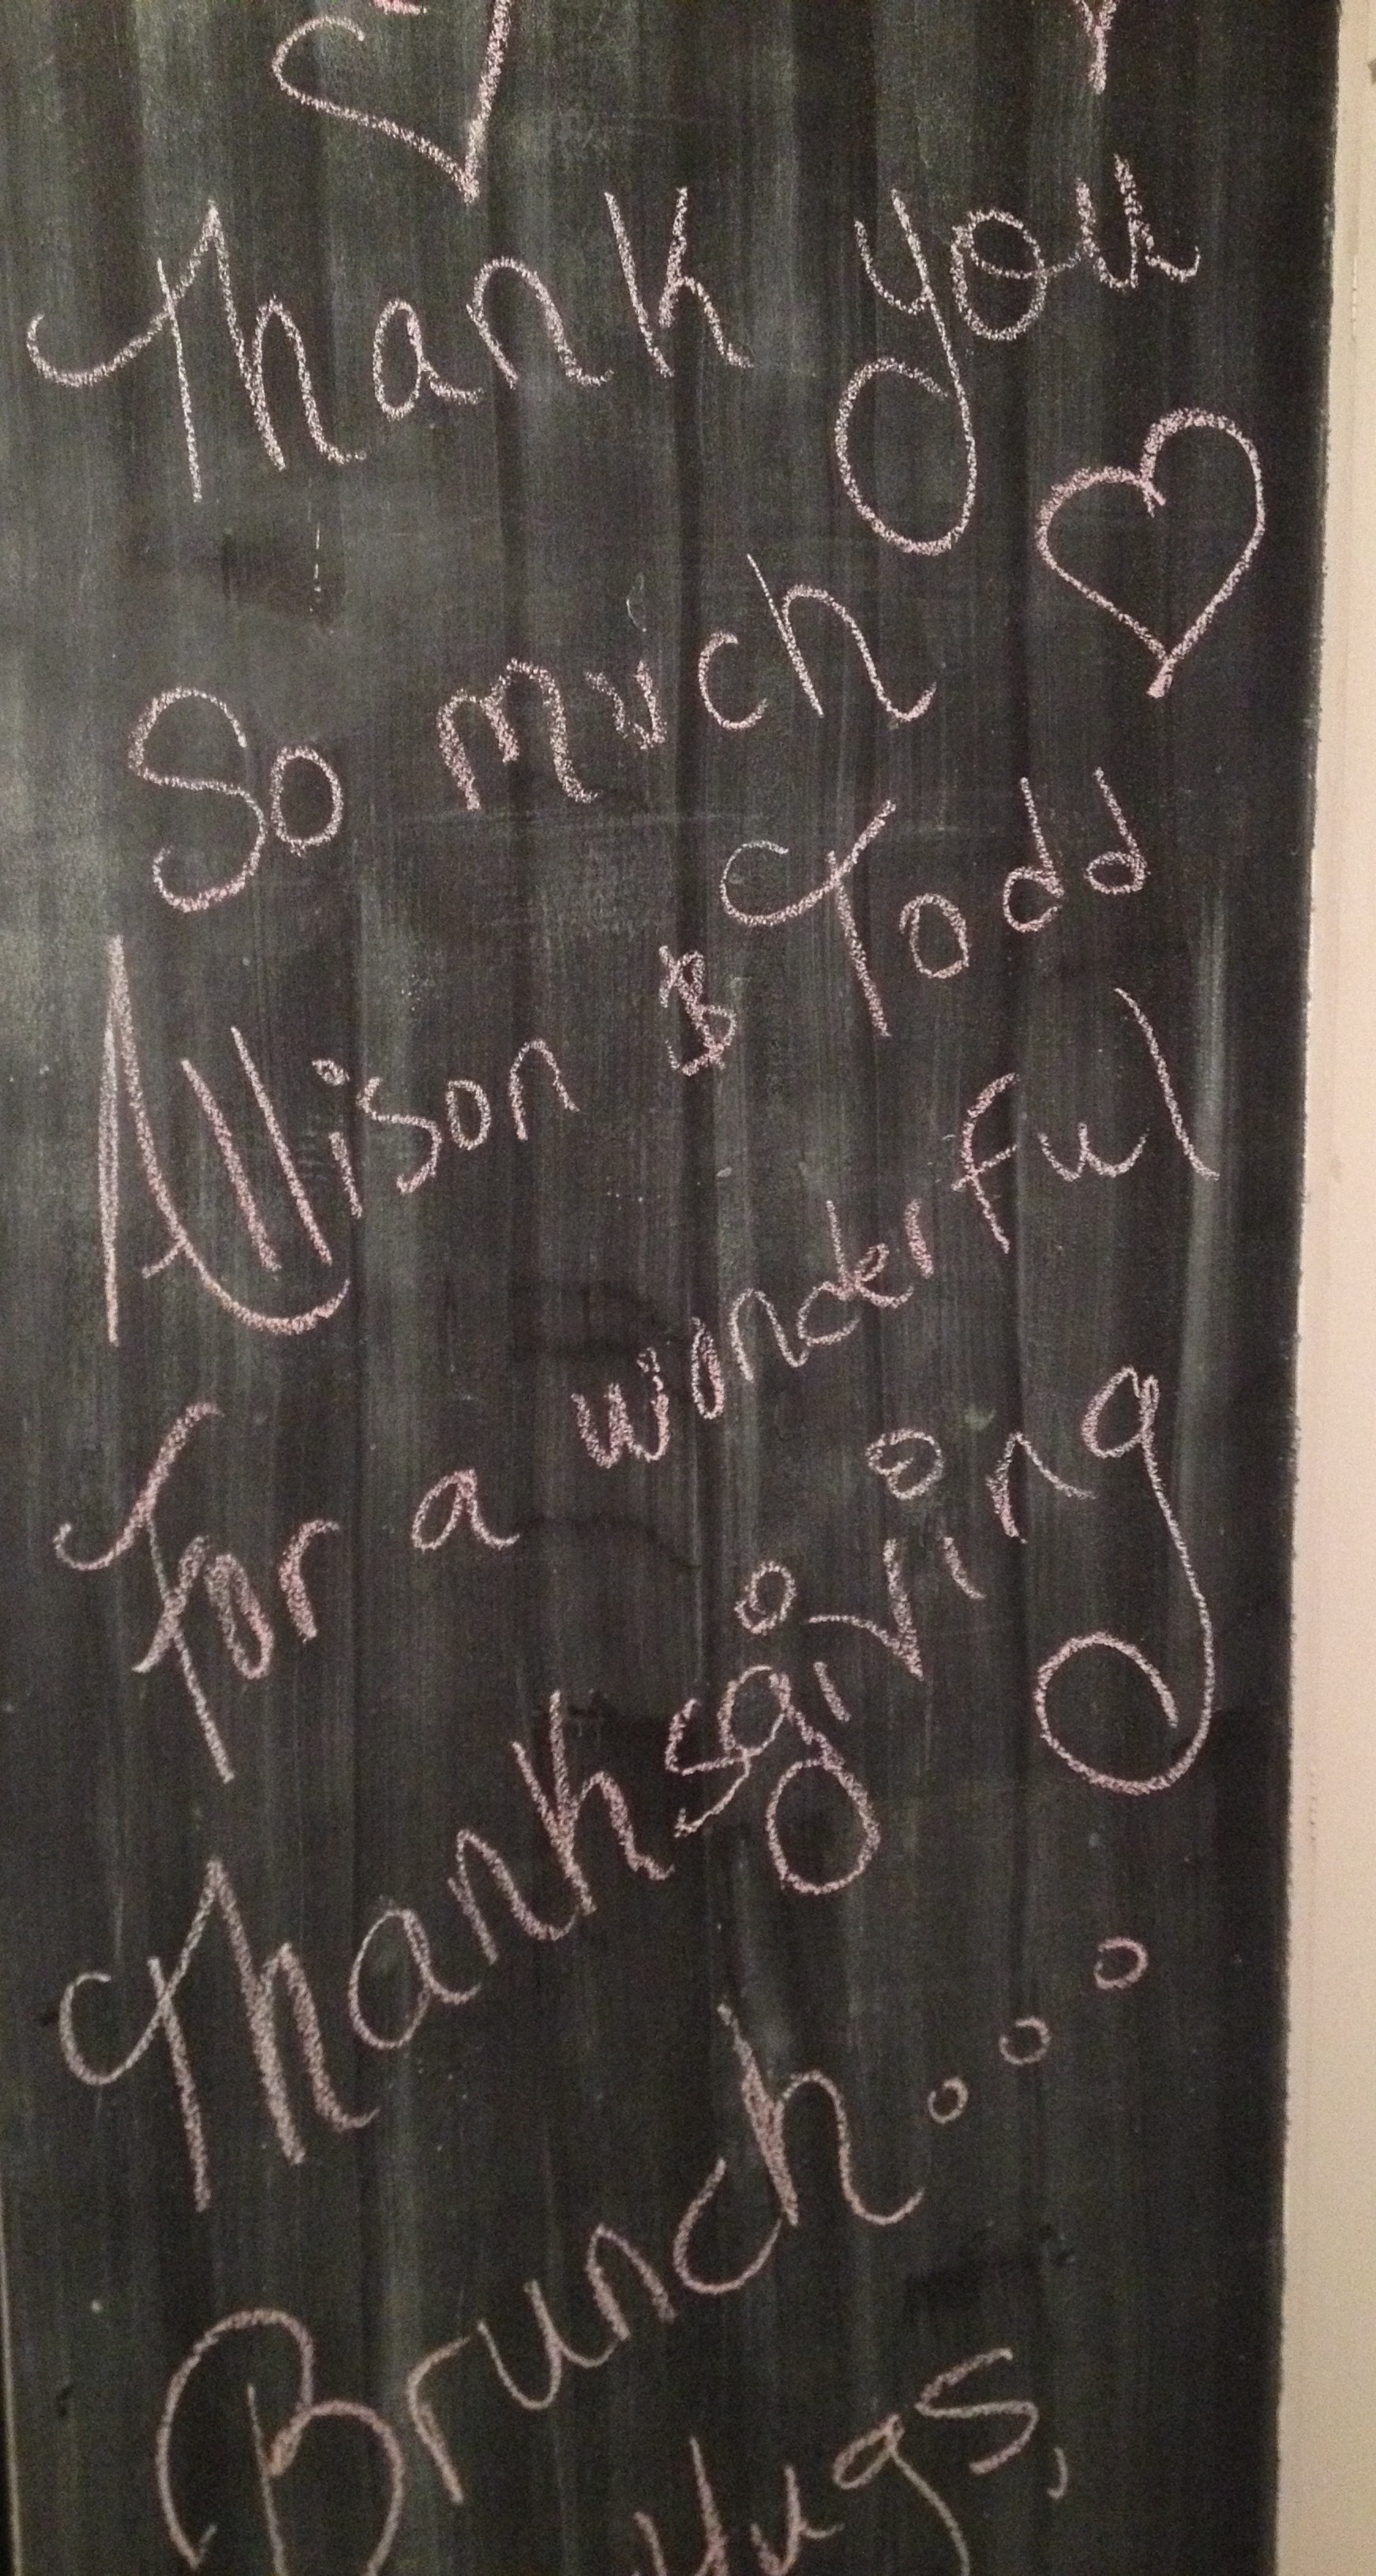 Thank you
So much
Allison & Todd
For a wonderful
Thanksgiving
Brunch...
Hugs,